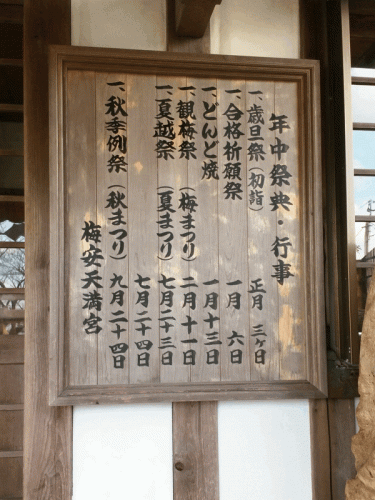 年中祭典・行事
一、歳旦祭（初詣） 正月 三ヶ日
一、合格祈願祭 一月 六日
一、どんど焼 一月十三日
一、観梅祭（梅まつり） 二月十一日
一、夏越祭（夏まつり） 七月二十三日
七月二十四日
一、秋季例祭（秋まつり） 九月二十四日
梅安天満宮